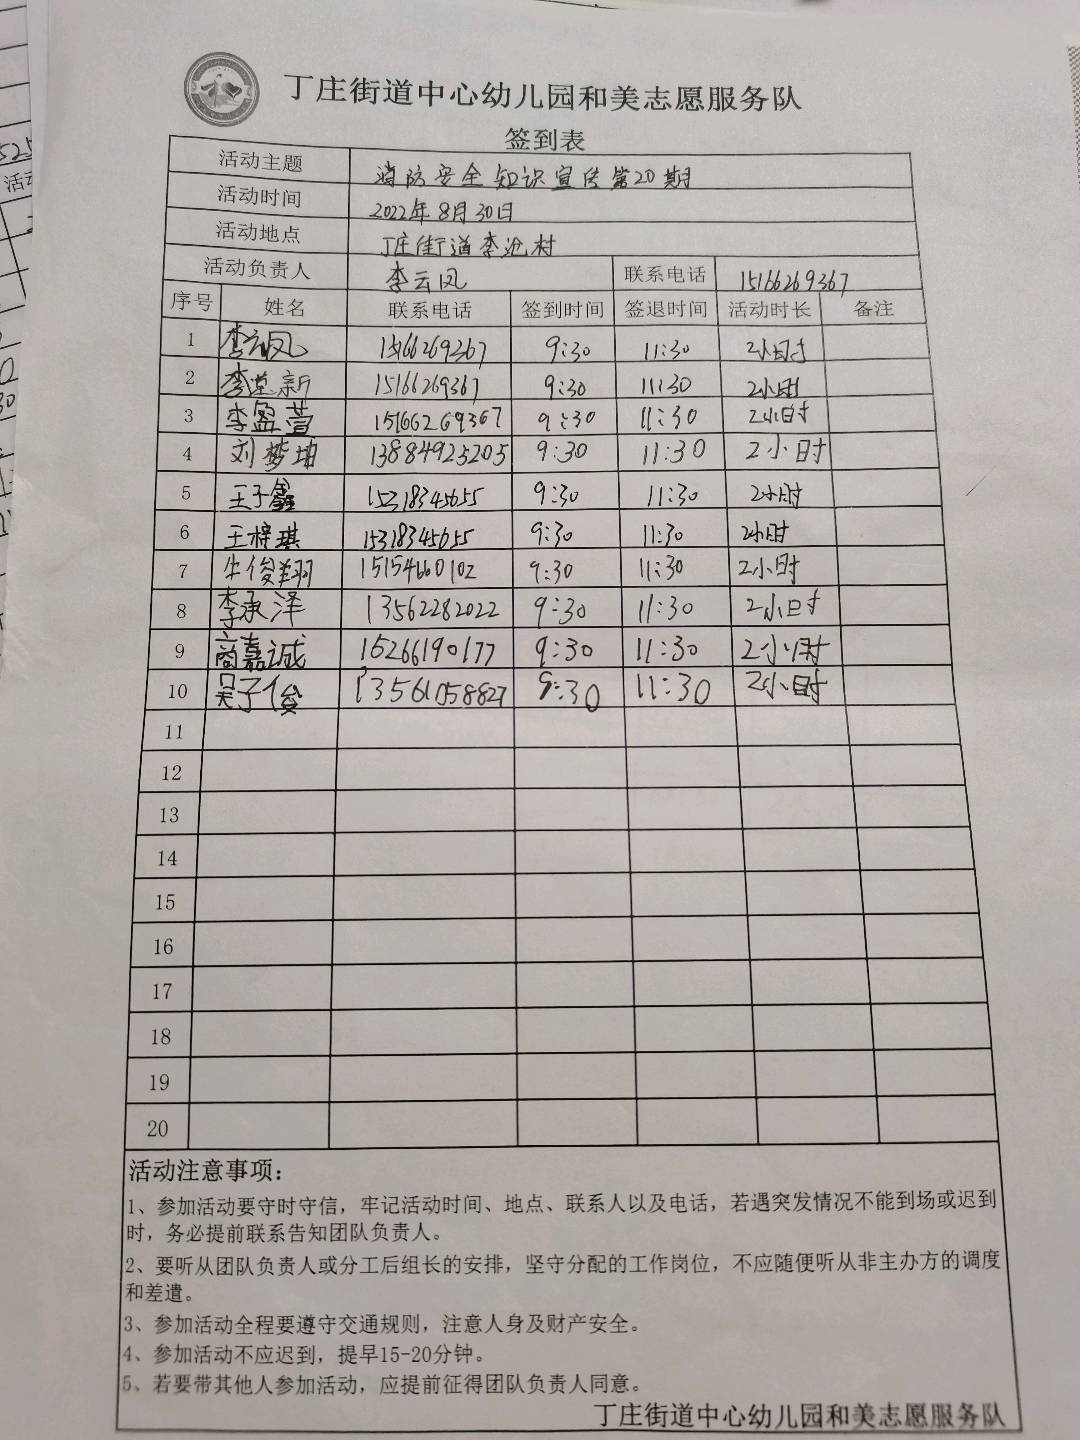 丁庄街道中心幼儿园和美志愿服务队
签到表
活动主题 消防安全知识宣传第20期
活动时间 2022年8月30日
活动地点 丁庄街道李沧村
活动负责人 李云凤 联系电话 15166269367
序号 姓名 联系电话 签到时间 签退时间 活动时长 备注
1 李云凤 15166269367 9:30 11:30 2小时
2 李 新 15166269367 9:30 11:30 2小时
3 李盈萱 15166269367 9:30 11:30 2小时
4 刘梦坤 13884925205 9:30 11:30 2小时
5 王子鑫 15318345655 9:30 11:30 2小时
6 王梓琪 15318345655 9:30 11:30 2小时
7 牛俊翔 15154660102 9:30 11:30 2小时
8 李承泽 13562282022 9:30 11:30 2小时
9 商嘉诚 15266190177 9:30 11:30 2小时
10 吴子俊 13561058827 9:30 11:30 2小时
11
12
13
14
15
16
17
18
19
20
活动注意事项：
1、参加活动要守时守信，牢记活动时间、地点、联系人以及电话，若遇突发情况不能到场或迟到
时，务必提前联系告知团队负责人。
2、要听从团队负责人或分工后组长的安排，坚守分配的工作岗位，不应随便听从非主办方的调度
和差遣。
3、参加活动全程要遵守交通规则，注意人身及财产安全。
4、参加活动不应迟到，提早15-20分钟。
5、若要带其他人参加活动，应提前征得团队负责人同意。
丁庄街道中心幼儿园和美志愿服务队